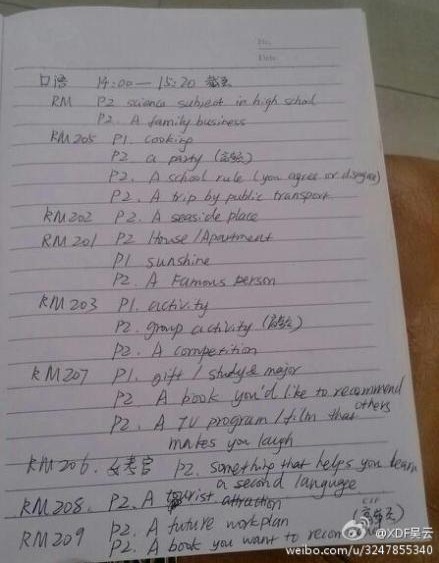 No.
Date
口语 14:00—15:20
RM P2 science subject in high school
P2. A family business
RM205 P1. cooking
P2 a party
P2. A school rule (you agree or disagree)
P2. A trip by public transport
RM202 P2. A seaside place
RM201 P2 House/Apartment
P1 sunshine
P2. A Famous person
RM203 P1. activity
P2. group activity
P2. A competition
RM207 P1. gift / study & major
P2 A book you'd like to recommend
others
P2. A TV program/film that
makes you laugh
RM206. 女考官 P2. something that helps you learn
a second language
RM208. P2. A tourist attraction
RM209 P2. A future work plan
P2. A book you want to recom
@XDF吴云
weibo.com/u/3247855340